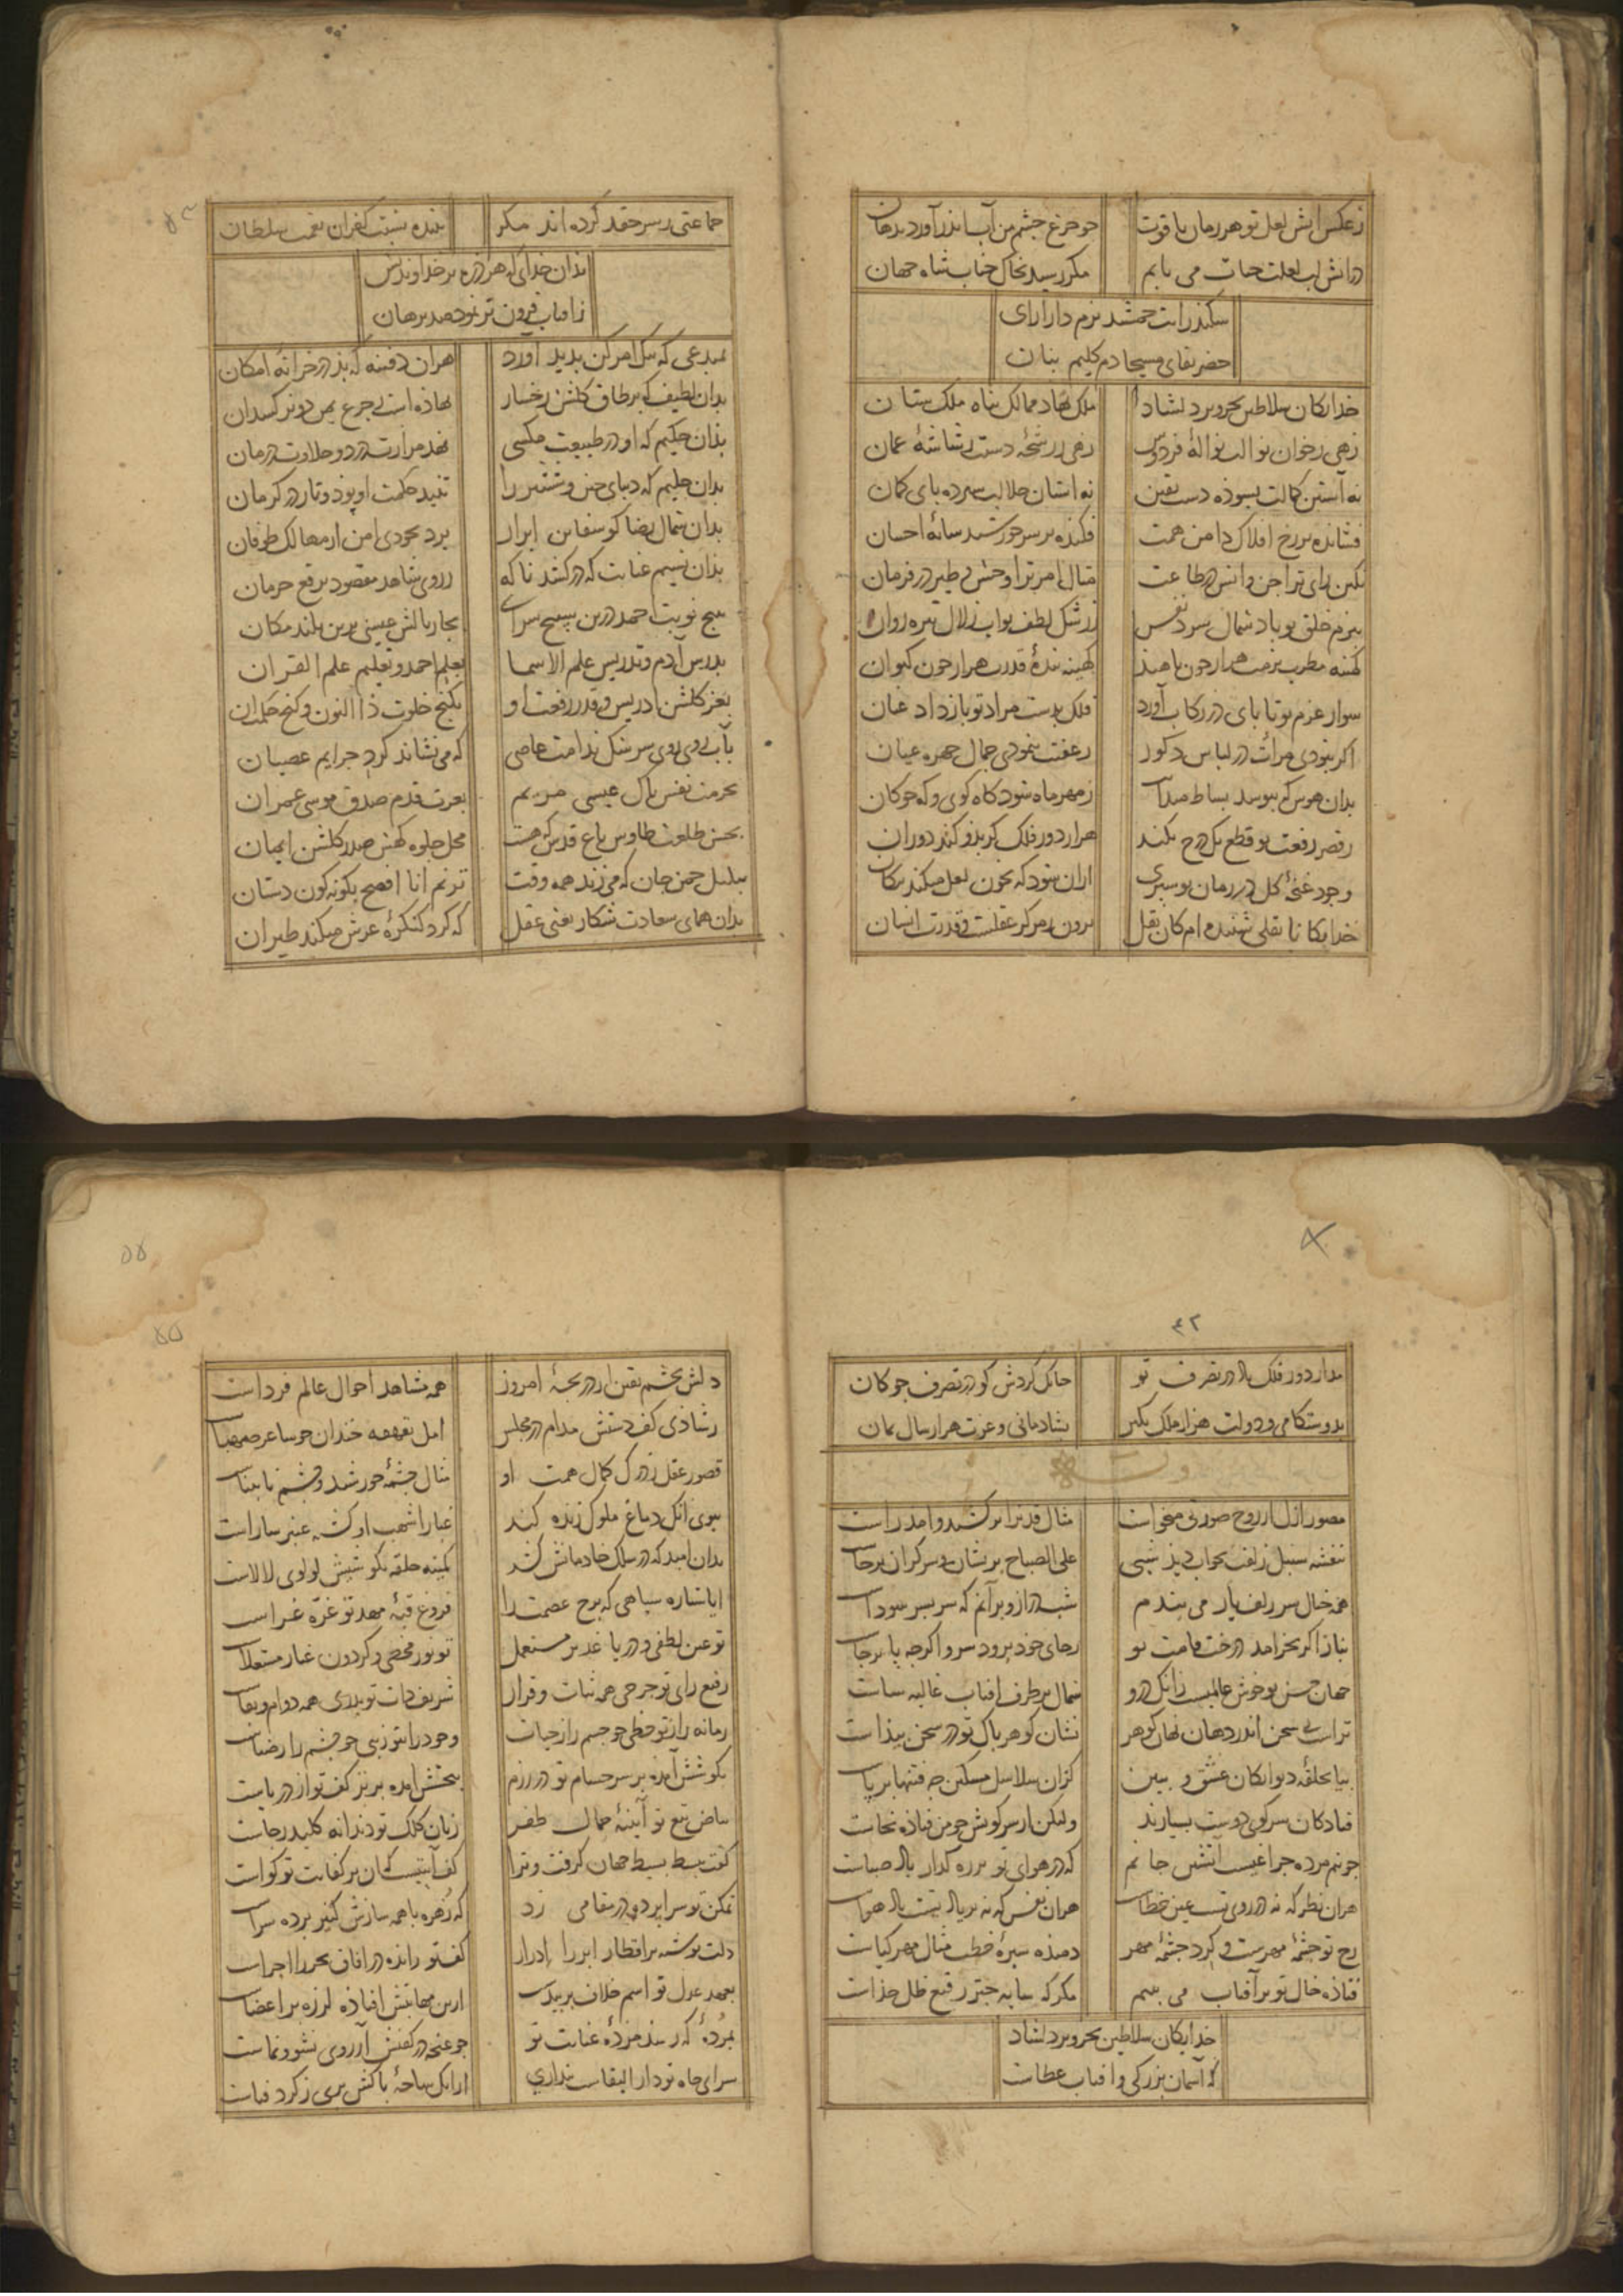 زعکس آتش لعل تو هر زمان یاقوت
چو جزع چشم من آب اندر آورد بدهان
در آتش لب لعلت حیات می یابم
مکر رسید بخاک جناب شاه جهان
سکندر رایت جمشید بزم دارا رای
خضر بقای مسیحا دم کلیم بنان
خدایکان سلاطین بحر و بر دلشاد
ملک نهاد ممالک پناه ملک ستان
زهی زخوان نوالت نواله فردوس
زهی ز رشحه دستت رشاشه عمان
نه آستین کمالت بسوده دست یقین
نه آستان جلالت سپرده پای کمان
فشانده بر رخ افلاک دامن همت
فکنده بر سر خورشید سایه احسان
نکین رای ترا جن و انس در طاعت
مثال امر ترا وحش و طیر در فرمان
بنرم خلق تو باد شمال سرد نفس
ز رشک لطف تو آب زلال تیره روان
کمینه مطرب بزمت هزار چون ناهید
کهینه بنده قدرت هزار چون کیوان
سوار عزم تو تا پای در رکاب آورد
فلک بدست مراد تو باز داد عنان
اکر نبودی مرآت در لباس ذکور
ز عفت ننمودی جمال چهره عیان
بدان هوس که ببوسد بساط میدانت
ز مهر ماه شود کاه کوی و که چوکان
ز قصر رفعت تو قطع یک درج نکند
هزار دور فلک کر بذو کند دوران
وجود غنچه کل در زمان تو سپری
از آن شود که بخون لعل میکند پیکان
خدایکانا نقلی شنیده ام کان نقل
برون ز مرکز عقلست و قدرت انسان
جماعتی ز سر حقد کرده اند مکر
بنده نسبت کفران نعمت سلطان
بدان خدای که هر ذره بر خداوندیش
ز آفتاب فزون تر نموده صد برهان
بمبدعی که بیک امر کن بدید آورد
هر آن دفینه که بذ در خزانه امکان
بدان لطیف که بر طاق کلشن رخسار
نهاده است ز جزع یمن دو نرکسدان
بذان حکیم که او در طبیعت مکسی
نهد مرارت درد و حلاوت درمان
بدان حلیم که دیبای چین و ششتر را
تنید حکمت او پود و تار در کرمان
بدان شمال رضا کو سفاین ابرار
برد بجودی امن از مهالک طوفان
بذان نسیم عنایت که در کشد ناکه
ز روی شاهد مقصود برقع حرمان
به پنج نوبت احمد درین سپنج سرای
بچار بالش عیسی برین بلند مکان
بدرس آدم و تدریس علم الاسما
بعلم احمد و تعلیم علم القرآن
بعز کلشن ادریس و قدر رفعت او
بکنج خلوت ذا النون و کنج حکمت آن
بآب روی سرشک ندامت عاصی
که می نشاند کرد جرایم عصیان
بحرمت نفس پاک عیسی مریم
بعزت قدم صدق موسی عمران
بحسن طلعت طاوس باغ قدس که هست
محل جلوه کهش صدر کلشن ایمان
ببلبل چمن جان که می زند همه وقت
ترنم انا افصح بکونه کون دستان
بدان همای سعادت شکار یعنی عقل
که کرد کنکره عرش میکند طیران
۴۲
مدار دور فلک باد در تصرف تو
چنانک کردش کو در تصرف چوکان
بدوستکامی و دولت هزار ملک بکیر
بشادمانی و عزت هزار سال بمان
مصور ازل از روح صورتی میخواست
مثال قد ترا برکشید و آمد راست
بنفشه سنبل زلفت بخواب دیذ شبی
علی الصباح پریشان و سرکران برخاست
همه خیال سر زلف یار می بندم
شب دراز و بر آنم که سر بسر سوداست
بناز اکر بخرامد درخت قامت تو
ز جای خود برود سرو اکرچه پا برجاست
جهان حسن تو خوش عالمیست زانک درو
شمال بر طرف آفتاب غالیه ساست
تراست بی سخن اندر دهان نهان کوهر
نشان کوهر پاک تو در سخن پیذاست
بیا بحلقه دیوانکان عشق و ببین
کز آن سلاسل مشکین چه فتنها برپاست
فتادکان سر کوی دوست بسیارند
ولیکن از سر کویش چو من فتاذه نخاست
چو نیم مرده چراغیست آتشین جانم
که در هوای تو بر ره کذار باد صباست
هر آن نظر که نه در روی تست عین خطاست
هر آن نفس که نه بر یاد تست باد هواست
رخ تو چشمه مهرست و کرد چشمه مهر
دمیذه سبزه خطت مثال مهرکیاست
فتاذه خال تو بر آفتاب می بینم
مکر که سایه چتر رفیع ظل خذاست
خدایکان سلاطین بحر و بر دلشاد
که آسمان بزرکی و آفتاب عطاست
۵۵
دلش بچشم یقین از دریچه امروز
همه مشاهد احوال عالم فرداست
ز شاذی کف دستش مدام در مجلس
امل بقهقهه خندان چو ساغر صهباست
قصور عقل ز درک کمال همت او
مثال چشمه خورشید و چشم نابیناست
ببوی آنک دماغ ملوک زنده کند
غبار اشهب او کشته عنبر ساراست
بدان امید که در سلک خادمانش کشد
کمینه حلقه بکوشیش لولوی لالاست
ایا ستاره سپاهی که برج عصمت را
فروغ قبه مهد تو غره غراست
تو عین لطفی و دریا غدیر مستعمل
تو نور محضی و کردون غبار مستعلاست
رفیع رای تو چرخی همه ثبات و قرار
شریف ذات تو بدری همه دوام و بقاست
زمانه را ز تو حظی چو جسم را ز حیات
وجود را بتو زیبی چو چشم را ز ضیاست
بکوشش آمده بر سر حسام تو در رزم
ببخشش آمده بر تر کف تو از دریاست
بیاض تیغ تو آیینه جمال ظفر
زبان کلک تو دندانه کلید رجاست
کفت بسط بسیط جهان کرفت و ترا
کف آیتیست که آن بر کفایت تو کواست
تمکن تو سراپرده در مقامی زد
که زهره با همه سازش کنیز پرده سراست
دلت نوشته بر اقطار ابر را ادرار
کف تو رانده در آفاق بحر را اجراست
بعهد عدل تو اسم خلاف بر بیدست
از این مهابتش افتاذه لرزه بر اعضاست
بمرده که رسد مژده عنایت تو
چو غنچه در کفنش آرزوی نشو و نماست
سرای جاه تو دار البقاست پنداری
از آنک ساحه پاکش بری ز کرد فناست